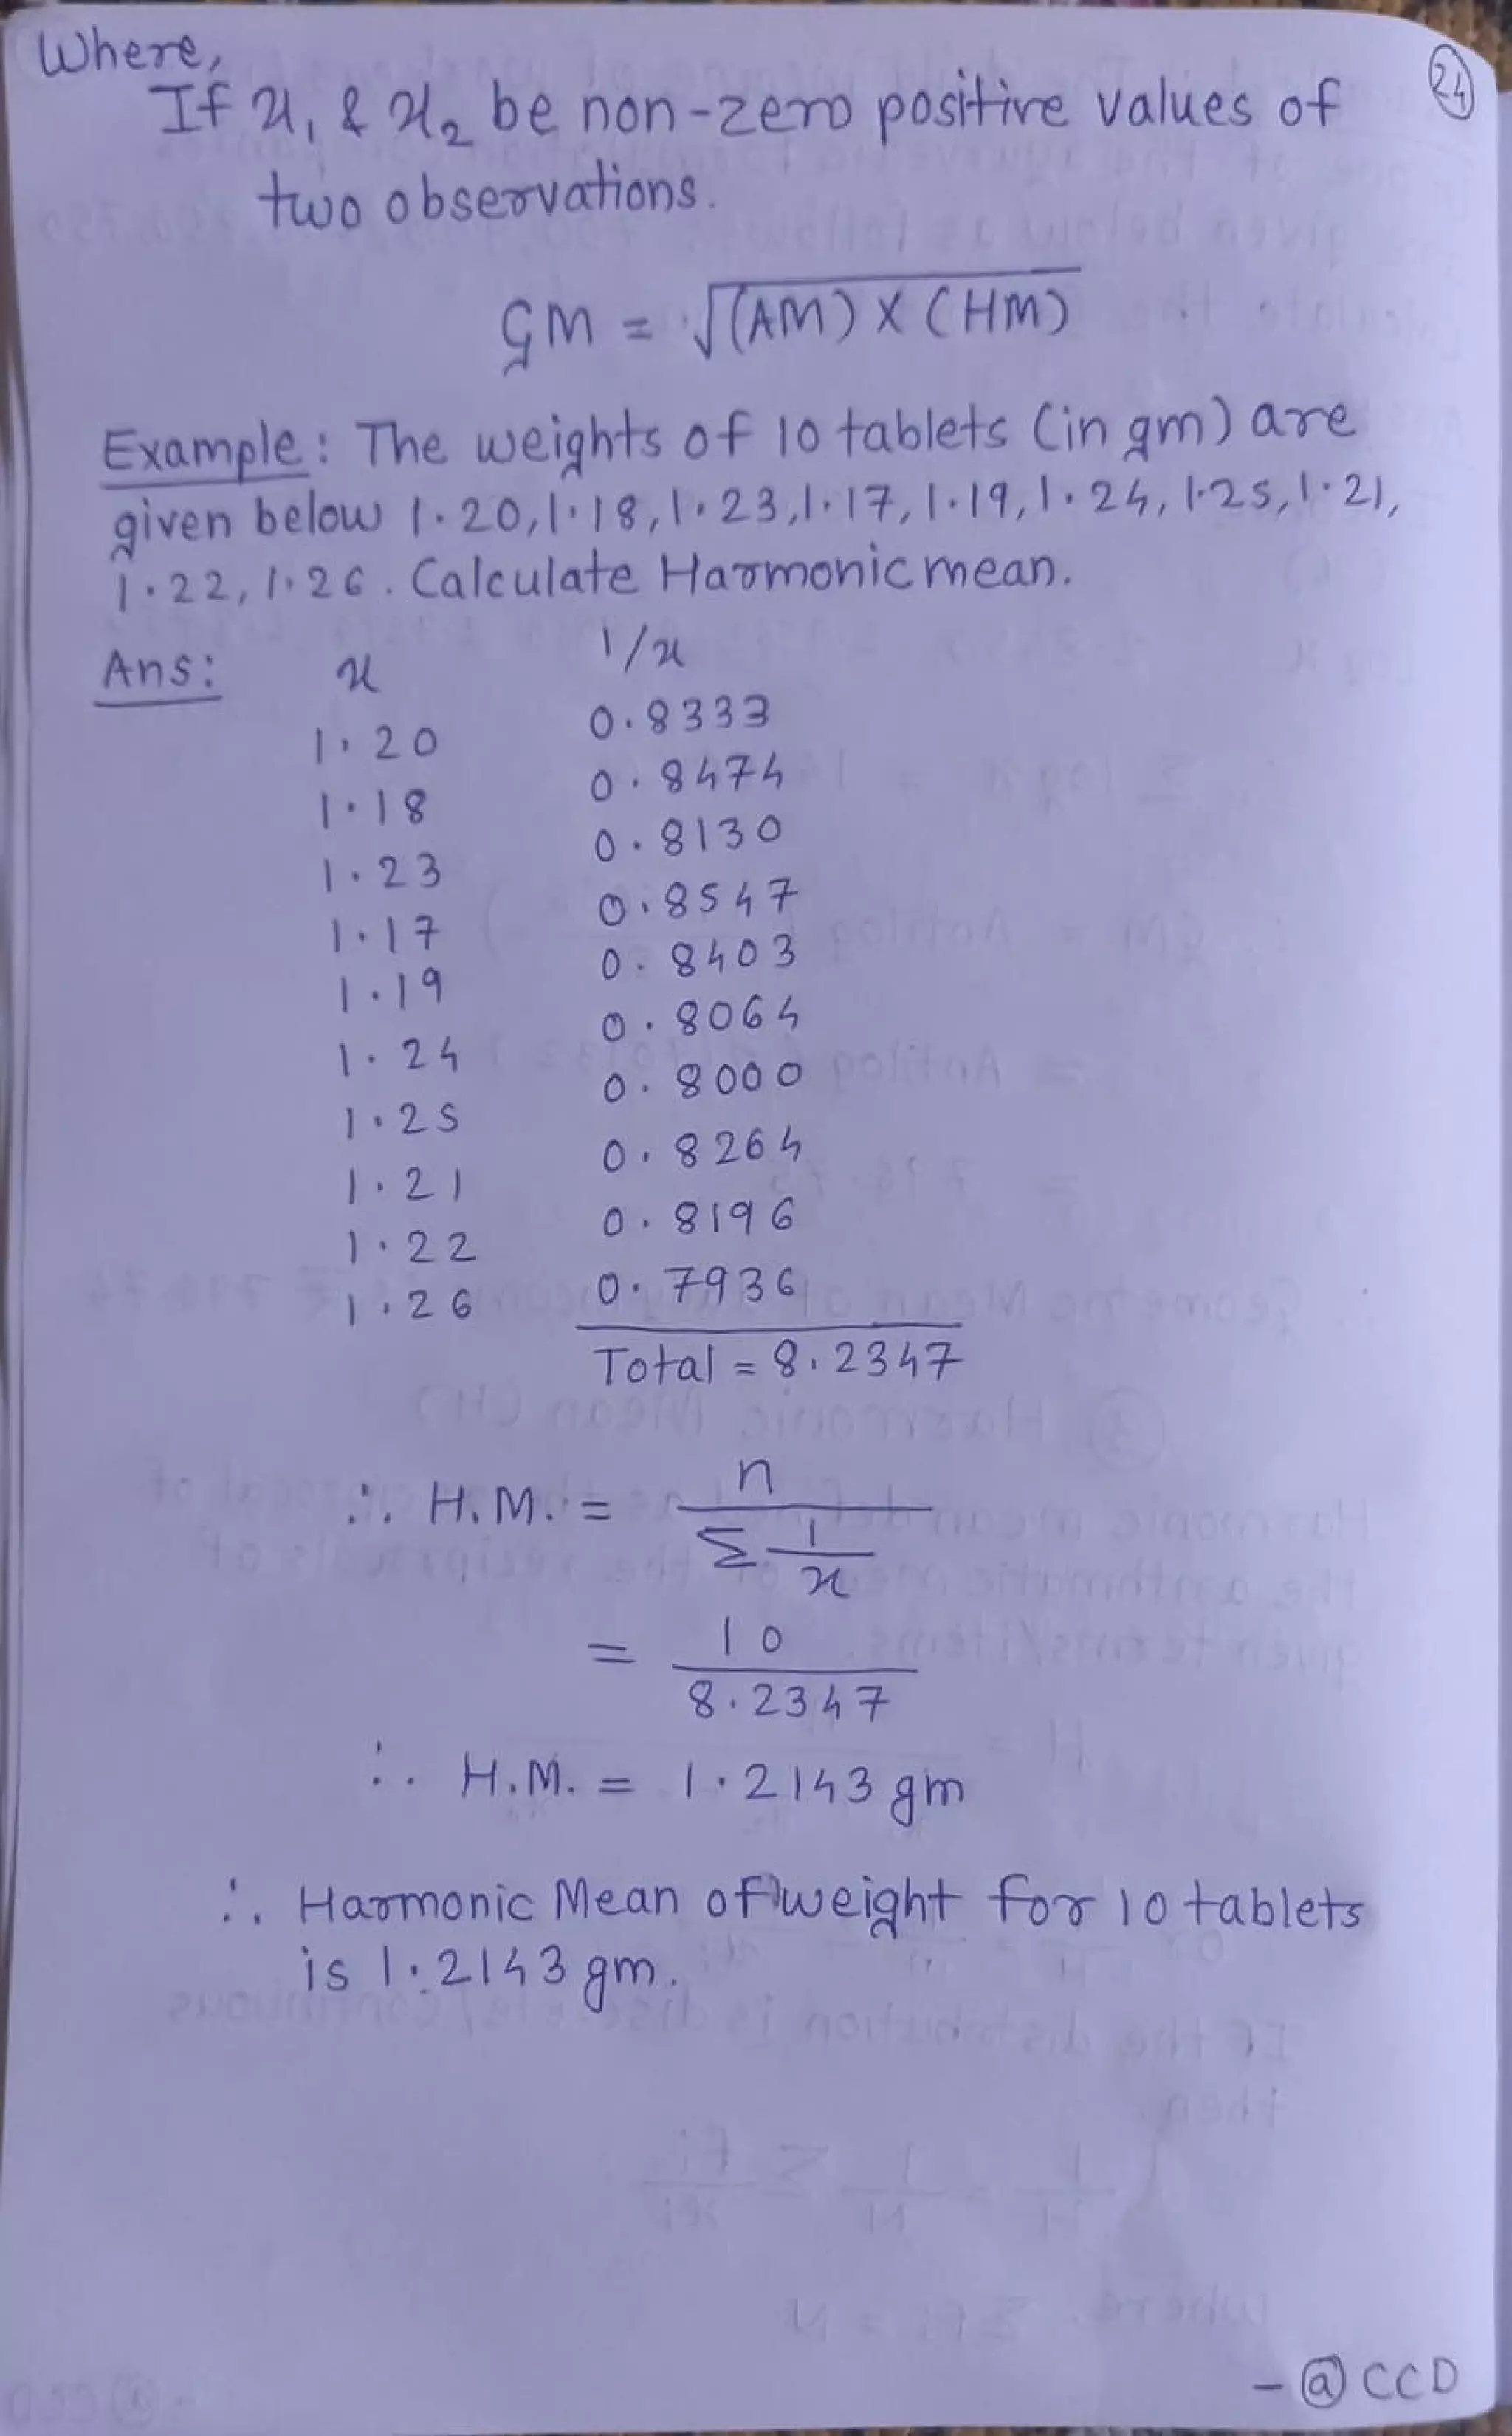 Where,
24
If x₁ & x₂ be non-zero positive values of
two observations.
GM = √(AM) X (HM)
Example: The weights of 10 tablets (in gm) are
given below 1.20, 1.18, 1.23, 1.17, 1.19, 1.24, 1.25, 1.21,
1.22, 1.26. Calculate Harmonic mean.
Ans: x 1/x
1.20 0.8333
1.18 0.8474
1.23 0.8130
1.17 0.8547
1.19 0.8403
1.24 0.8064
1.25 0.8000
1.21 0.8264
1.22 0.8196
1.26 0.7936
Total = 8.2347
∴ H.M. = n / Σ 1/x
= 10 / 8.2347
∴ H.M. = 1.2143 gm
∴ Harmonic Mean of weight for 10 tablets
is 1.2143 gm.
- @ CCD